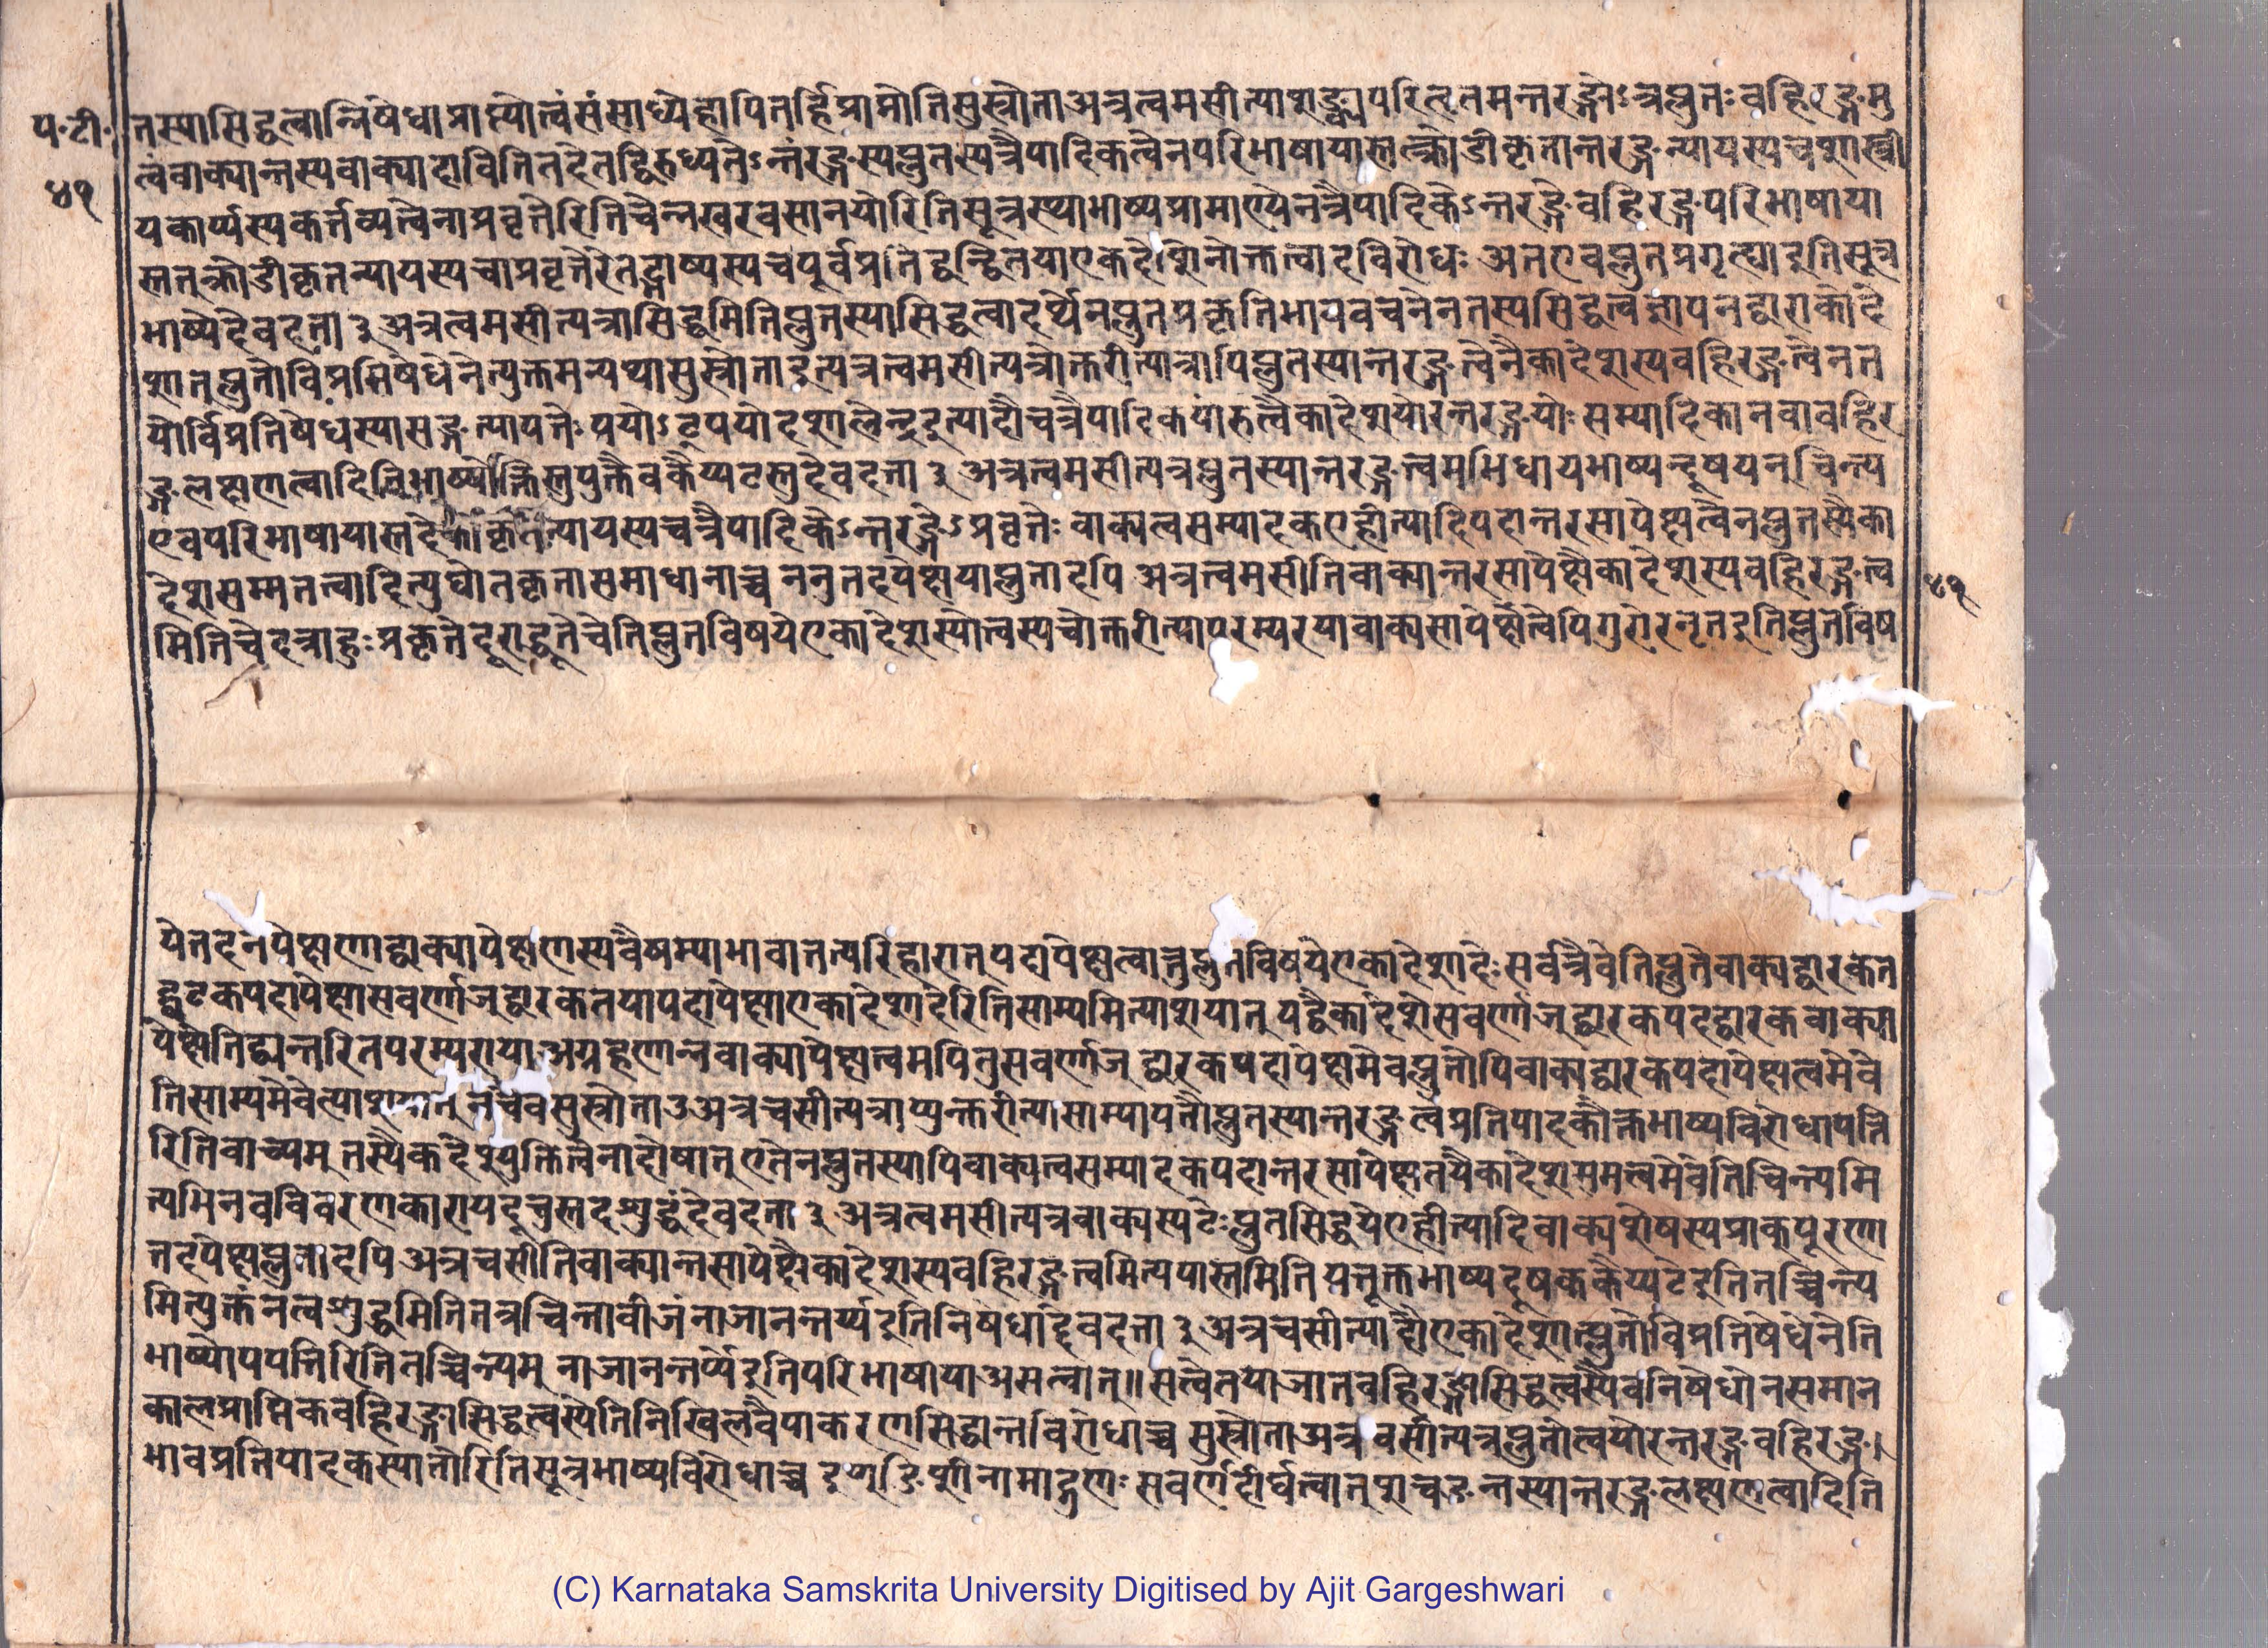 प॰टी॰
५१
तस्यासिद्धत्वान्निषेधाप्राप्त्योत्वंसंसाध्येहापितर्हिप्राप्नोतिसुस्त्रोता३अत्रत्वमसीत्याशङ्क्यपरिहृतमन्तरङ्गोऽत्रप्लुतः बहिरङ्गमु
त्वंवाक्यान्तस्यवाक्यादावितितदेतद्विरुध्यतेऽन्तरङ्गस्यप्लुतस्यत्रैपादिकत्वेनपरिभाषायास्तत्क्रोडीकृतान्तरङ्गन्यायस्यचशास्त्री
यकार्य्यस्यकर्त्तव्यत्वेनाप्रवृत्तेरितिचेन्नखरवसानयोरितिसूत्रस्थाभाष्यप्रामाण्येनत्रैपादिकेऽन्तरङ्गेबहिरङ्गपरिभाषाया
स्तत्क्रोडीकृतन्यायस्यचाप्रवृत्तेरेतद्भाष्यस्यचपूर्वप्रतिद्वन्द्वितयाएकदेशिनोक्तत्वादविरोधः अतएवप्लुतप्रगृह्याइतिसूत्र
भाष्येदेवदत्ता ३ अत्रत्वमसीत्यत्रासिद्धमितिप्लुतस्यासिद्धत्वादर्थेनप्लुतप्रकृतिभाववचनेनतस्यसिद्धत्वज्ञापनद्वाराकादे
शात्प्लुतोविप्रतिषेधेनेत्युक्तमन्यथासुस्त्रोताइत्यत्रत्वमसीत्यत्रोक्तरीत्यात्रापिप्लुतस्यान्तरङ्गत्वेनैकादेशस्यबहिरङ्गत्वेनत
योर्विप्रतिषेधस्यासङ्गत्यापत्तेः पयोऽवृपयोदशालेन्द्रइत्यादौचत्रैपादिकपारुत्वैकादेशयोरन्तरङ्गयोः सम्पादिकानवाबहिर
ङ्गलक्षणत्वादितिभाष्योक्तिस्तुयुक्तैवकैय्यटस्तुदेवदत्ता ३ अत्रत्वमसीत्यत्रप्लुतस्यान्तरङ्गत्वमभिधायभाष्यन्दूषयन्चिन्त्य
एवपरिभाषायास्तदेकीकृतन्यायस्यचत्रैपादिकेऽन्तरङ्गेऽप्रवृत्तेः वाक्यत्वसम्पादकएहीत्यादिपदान्तरसापेक्षत्वेनप्लुतस्यैका
देशसम्मतत्वादित्युद्योतकृतासमाधानाच्च ननुतदपेक्षयाप्लुतादपि अत्रत्वमसीतिवाक्यान्तरसापेक्षैकादेशस्यबहिरङ्गत्व
५१
मितिचेदत्राहुः प्रकृतेदूराद्धूतेचेतिप्लुतविषयेएकादेशस्योत्वस्यचोक्तरीत्यापरम्परयावाक्यसापेक्षत्वेपिगुरोरनृतइतिप्लुतविष
येतदनपेक्षाणाद्वाक्यापेक्षाणस्यवैषम्याभावात्तत्परिहारात्पदापेक्षत्वात्तुप्लुतविषयेएकादेशादेः सर्वत्रैवेतिप्लुतेवाक्यद्वारकत
द्घटकपदापेक्षासवर्णाज्द्वारकतयापदापेक्षाएकादेशादेरितिसाम्यमित्याशयात् यद्वैकादेशेसवर्णाज्द्वारकपदद्वारकवाक्या
पेक्षेतिद्व्यन्तरितपरम्परायाअग्रहणान्नवाक्यापेक्षत्वमपितुसवर्णाज् द्वारकपदापेक्षमेवप्लुतोपिवाक्यद्वारकपदापेक्षत्वमेवे
तिसाम्यमेवेत्याशयात् नचैवंसुस्त्रोता३अत्रचसीत्यत्राप्युक्तरीत्यासाम्यापत्तौप्लुतस्यान्तरङ्गत्वप्रतिपादकोक्तभाष्यविरोधापत्ति
रितिवाच्यम् तस्यैकदेश्युक्तित्वेनादोषात् एतेनप्लुतस्यापिवाक्यत्वसम्पादकपदान्तरसापेक्षतयैकादेशसमत्वमेवेतिचिन्त्यमि
त्यभिनवविवरणकारायदूचुस्तदशुद्धंदेवदत्ता ३ अत्रत्वमसीत्यत्रवाक्यस्यटेः प्लुतसिद्धयेएहीत्यादिवाक्यशेषस्यप्राक्पूरणा
त्तदपेक्षप्लुतादपि अत्रचसीतिवाक्यान्तसापेक्षैकादेशस्यबहिरङ्गत्वमित्यपास्तमिति यत्तूक्तभाष्यदूषककैय्यटेइतितच्चिन्त्य
मित्युक्तंनत्वशुद्धमितितत्रचिन्ताबीजंनाजानन्तर्य्यइतिनिषेधाद्देवदत्ता ३ अत्रचसीत्यादौएकादेशात्प्लुतोविप्रतिषेधेनेति
भाष्योपपत्तिरितितच्चिन्त्यम् नाजानन्तर्य्यइतिपरिभाषायाअसत्वात्॥ सत्वेतयाजातबहिरङ्गासिद्धत्वस्यैवनिषेधोनसमान
कालप्राप्तिकबहिरङ्गासिद्धत्वस्येतिनिखिलवैयाकरणसिद्धान्तविरोधाच्च सुस्त्रोताअत्रत्वसीत्यत्रप्लुतोत्वयोरन्तरङ्गबहिरङ्ग।
भावप्रतिपादकस्यातोरितिसूत्रभाष्यविरोधाच्च इण्शिङीनामाद्गुणः सवर्णदीर्घत्वात् शचङन्तस्यान्तरङ्गलक्षणत्वादिति
(C) Karnataka Samskrita University Digitised by Ajit Gargeshwari